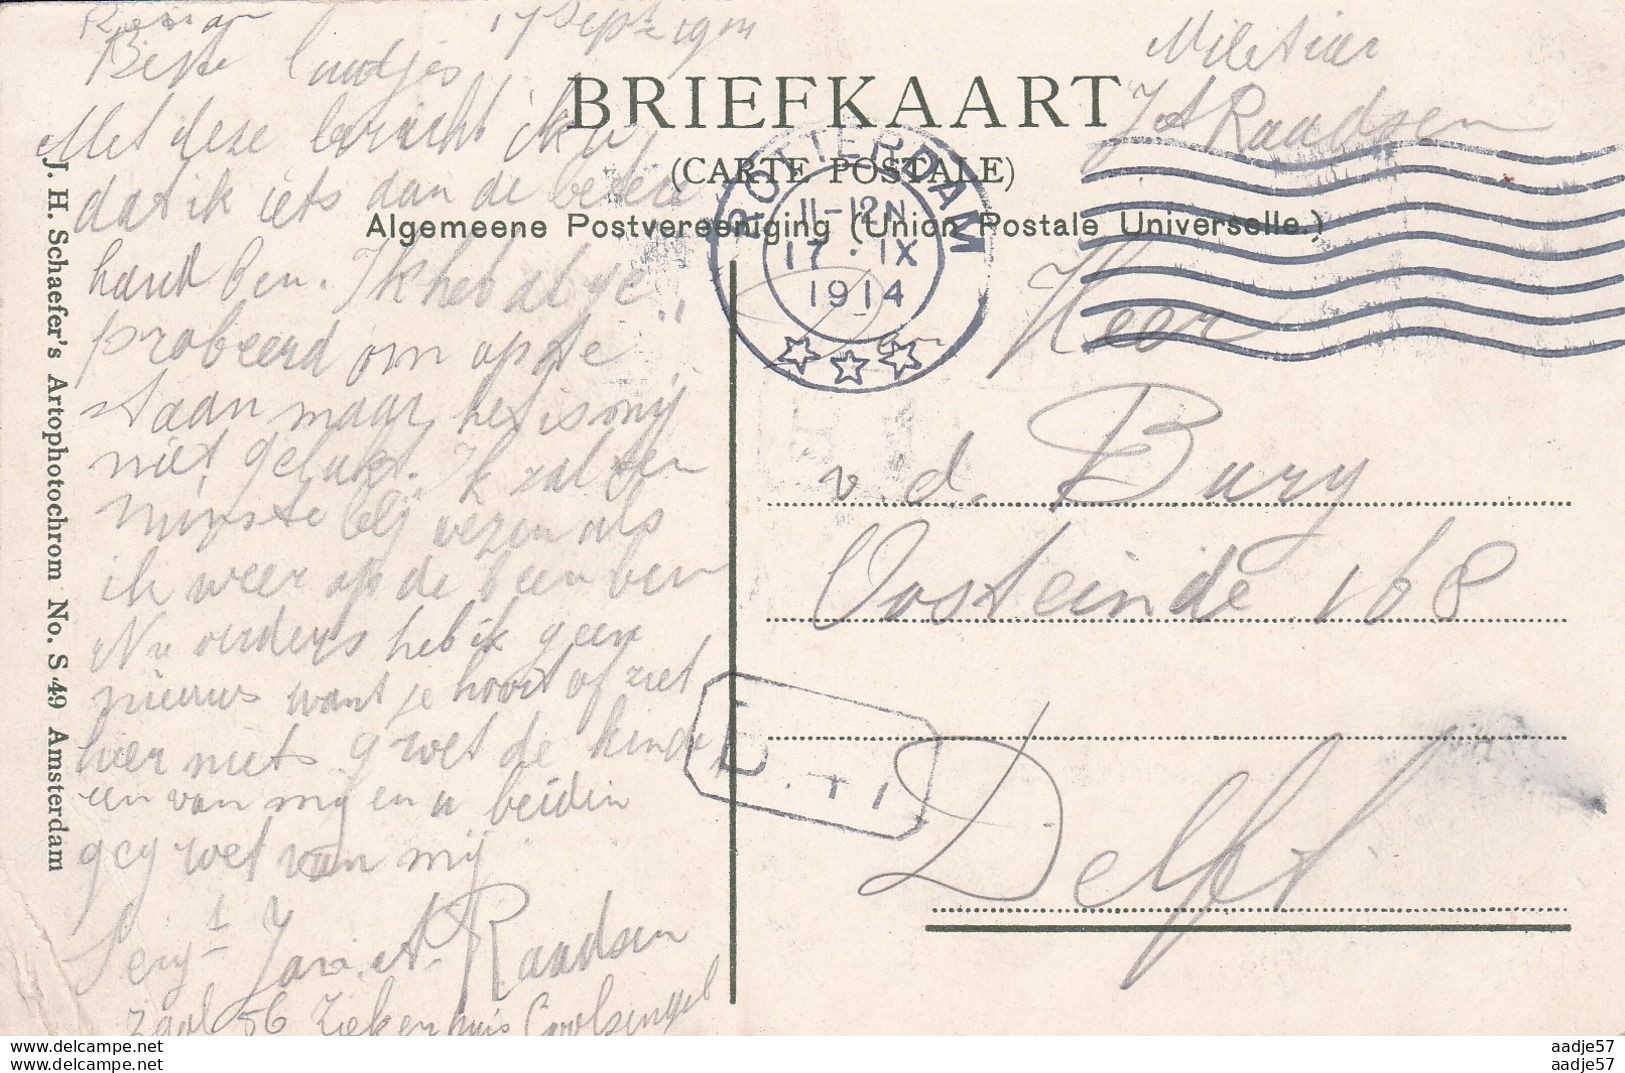 17 Sept 1914
Beste luidjes
Met deze bericht ik u
dat ik iets aan de beter
hand ben. Ik heb al ge
probeerd om op te
staan maar het is mij
niet gelukt. Ik zal ten
minste blij wezen als
ik weer op de been ben
Nu verders heb ik geen
nieuws want je hoort of ziet
hier niets groet de kinder
een van mij en u beiden
gegroet van mij
Serg.t Jan. A. Raadsen
Zaal 56 Ziekenhuis Coolsingel
J. H. Schaefer's Artophotochrom No. S 49 Amsterdam
BRIEFKAART
(CARTE POSTALE)
Algemeene Postvereeniging (Union Postale Universelle.)
ROTTERDAM
11-12N
17 · IX
1914
Miletiar
J A Raadsen
Heer
v. d. Burg
Oosteinde 168
Delft
www.delcampe.net
www.delcampe.net
aadje57
aadje57